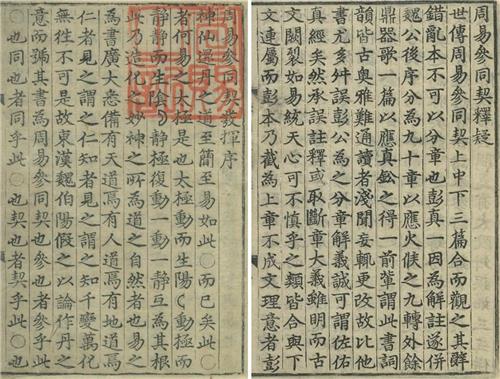 周易參同契釋疑
世傳周易參同契上中下三篇合而觀之其辭
錯亂本不可以分章也彭真一因為解註遂併
魏公後序分為九十章以應火候之九轉外餘
鼎器歌一篇以應真鉛之得一前輩謂此書詞
韻皆古奧雅難通讀者淺聞妄輒更改故比他
書尤多舛誤彭公為之分章解義誠可謂佐佑
真經矣然承誤註釋或取斷章大義雖明而古
文闕裂如易統天心可不慎乎之類皆合與下
文連屬而彭本乃截為上章不成文理意者彭
周易參同契發揮序
神仙還丹之道至簡至易如此〇而已矣此〇
者何易之太極是也太極動而生陽(動極而
靜靜而生陰)靜極復動一動一靜互為其根
此乃造化之妙神之所為道之自然者也易之
為書廣大悉備有天道焉有人道焉有地道焉
仁者見之謂之仁知者見之謂之知千變萬化
無往不可是故東漢魏伯陽假之以論作丹之
意而號其書為周易參同契也參也者參乎此
〇也同也者同乎此〇也契也者契乎此〇也